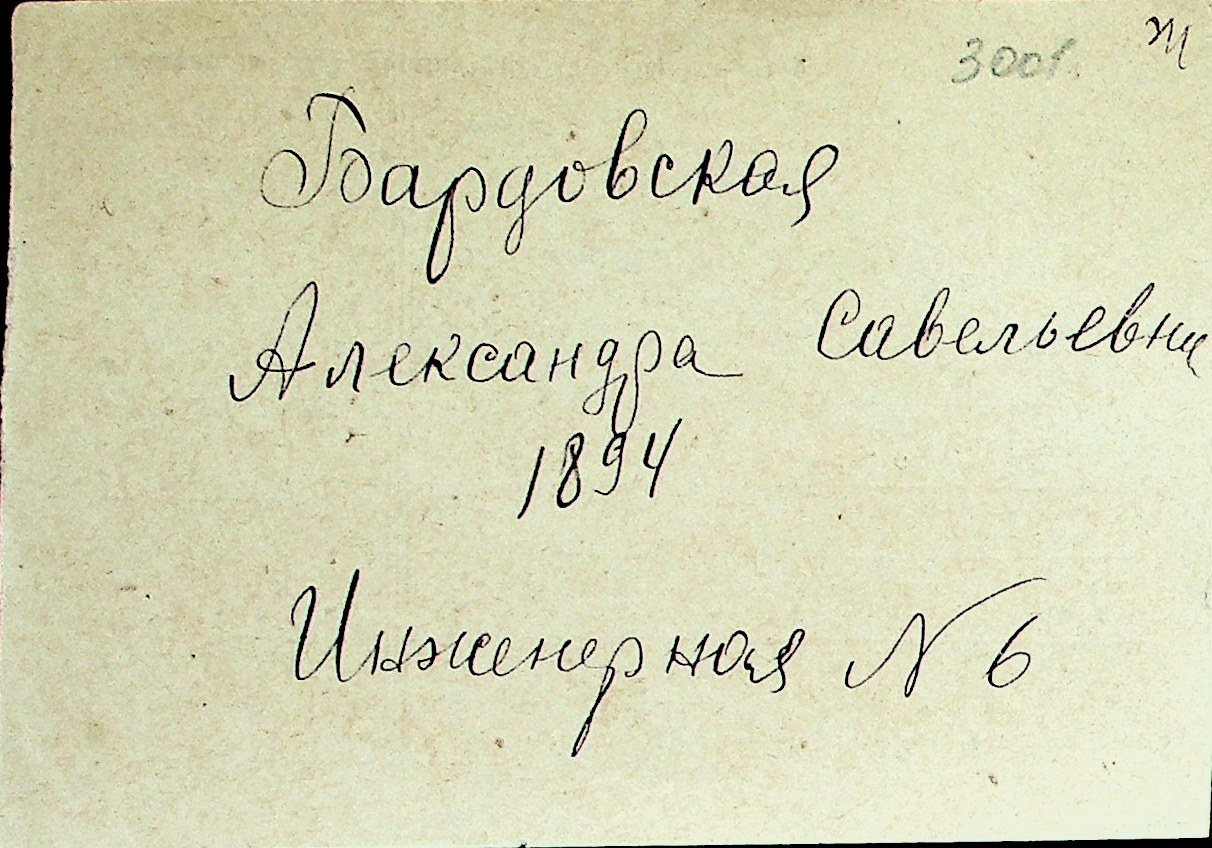 3001
Бардовская
Александра Савельевна
1894
Инженерная N 6